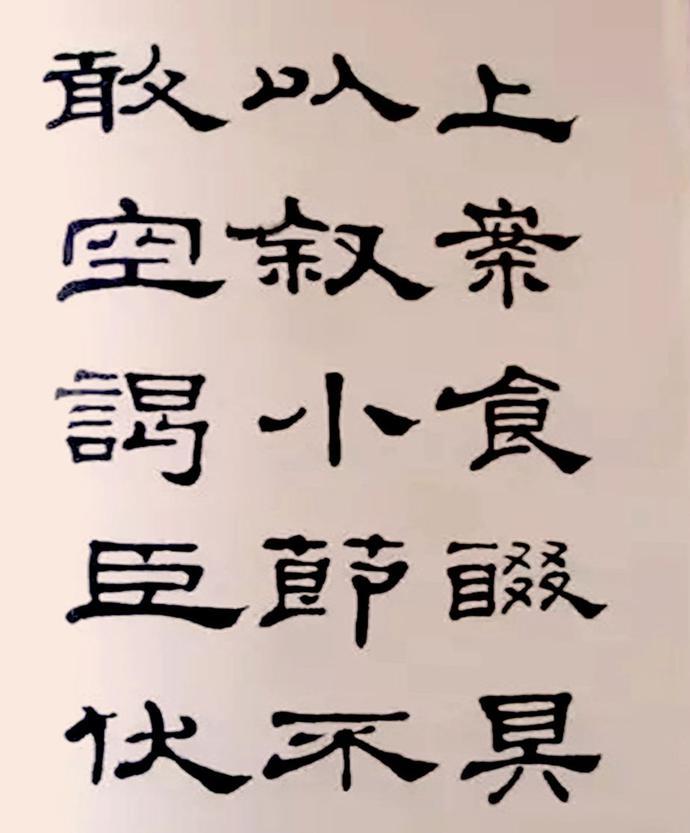 上案食醊具
以叙小節不
敢空謁臣伏